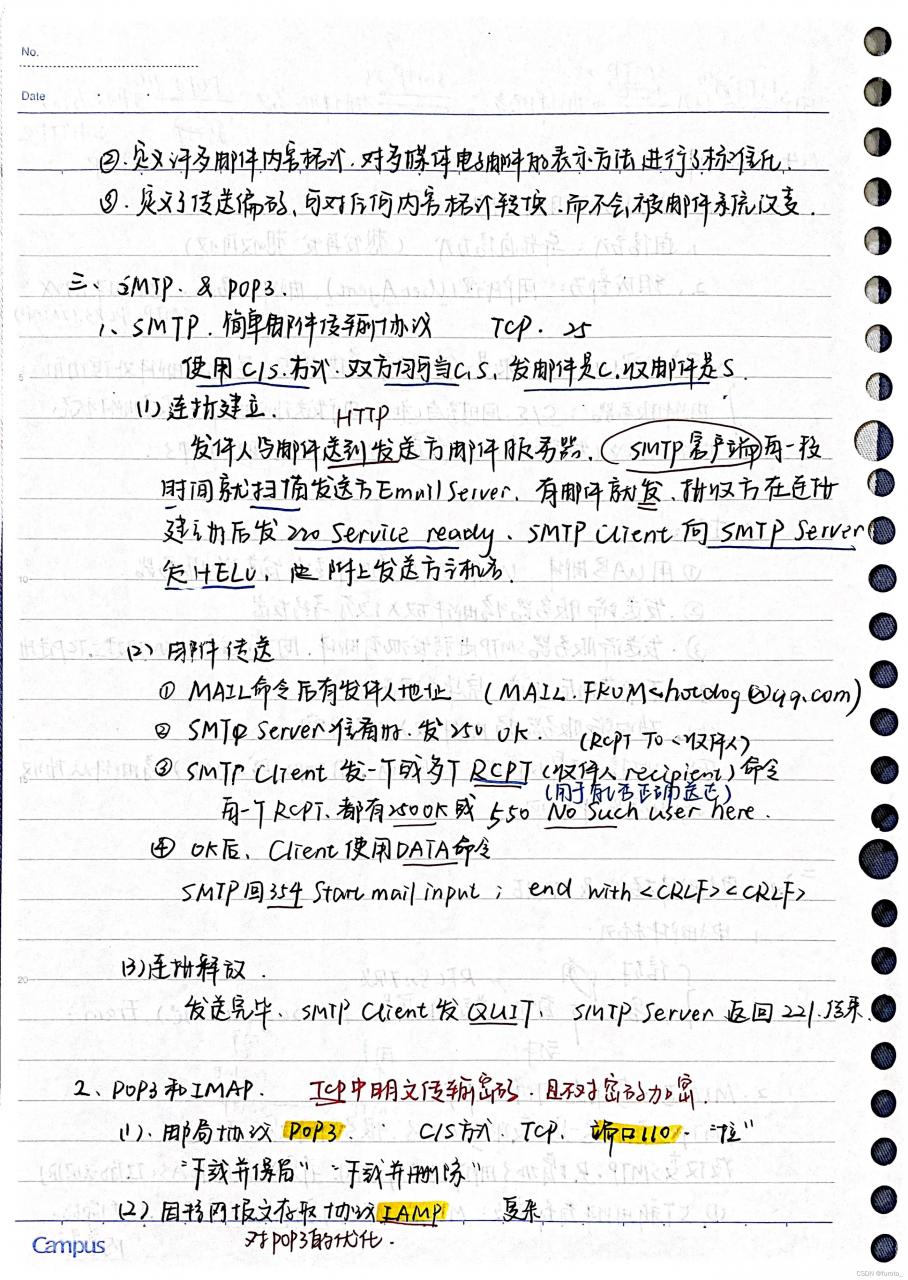 No.
Date
②.定义许多邮件内容格式.对多媒体电子邮件的表示方法进行了标准化.
③.定义了传送编码、可对任何内容格式转换.而不会被邮件系统改变.
三、SMTP. & POP3.
1、SMTP.简单邮件传输协议 TCP. 25
使用C/S.方式.双方均可当C,S,发邮件是C.收邮件是S.
(1)连接建立. HTTP
发件人与邮件送到发送方邮件服务器. SMTP客户端每一段
时间就扫描发送方Email Server. 有邮件就发. 接收方在连接
建立后发 220 Service ready、SMTP Client 向 SMTP Server
发HELO, 附上发送方主机名.
(2)邮件传送
① MAIL命令后有发件人地址 (MAIL. FROM<hotdog@qq.com)
② SMTP Server 准备好.发250 OK.
(RCPT TO<收件人)
③ SMTP Client 发一个或多个RCPT (收件人recipient)命令
(用于能否正确送达)
每一个RCPT.都有250OK或 550 No Such user here.
④ OK后、Client使用DATA命令
SMTP回354 Start mail input ; end with <CRLF><CRLF>
(3)连接释放.
发送完毕、SMTP Client发QUIT、 SMTP Server 返回221.结束.
2、POP3和IMAP. TCP中明文传输密码.且不对密码加密.
(1).邮局协议 POP3. C/S方式、TCP. 端口110. "拉"
"下载并保留" "下载并删除"
(2).因特网报文存取协议 IAMP 复杂
对POP3的优化.
Campus
5
10
15
20
CSDN @furota_